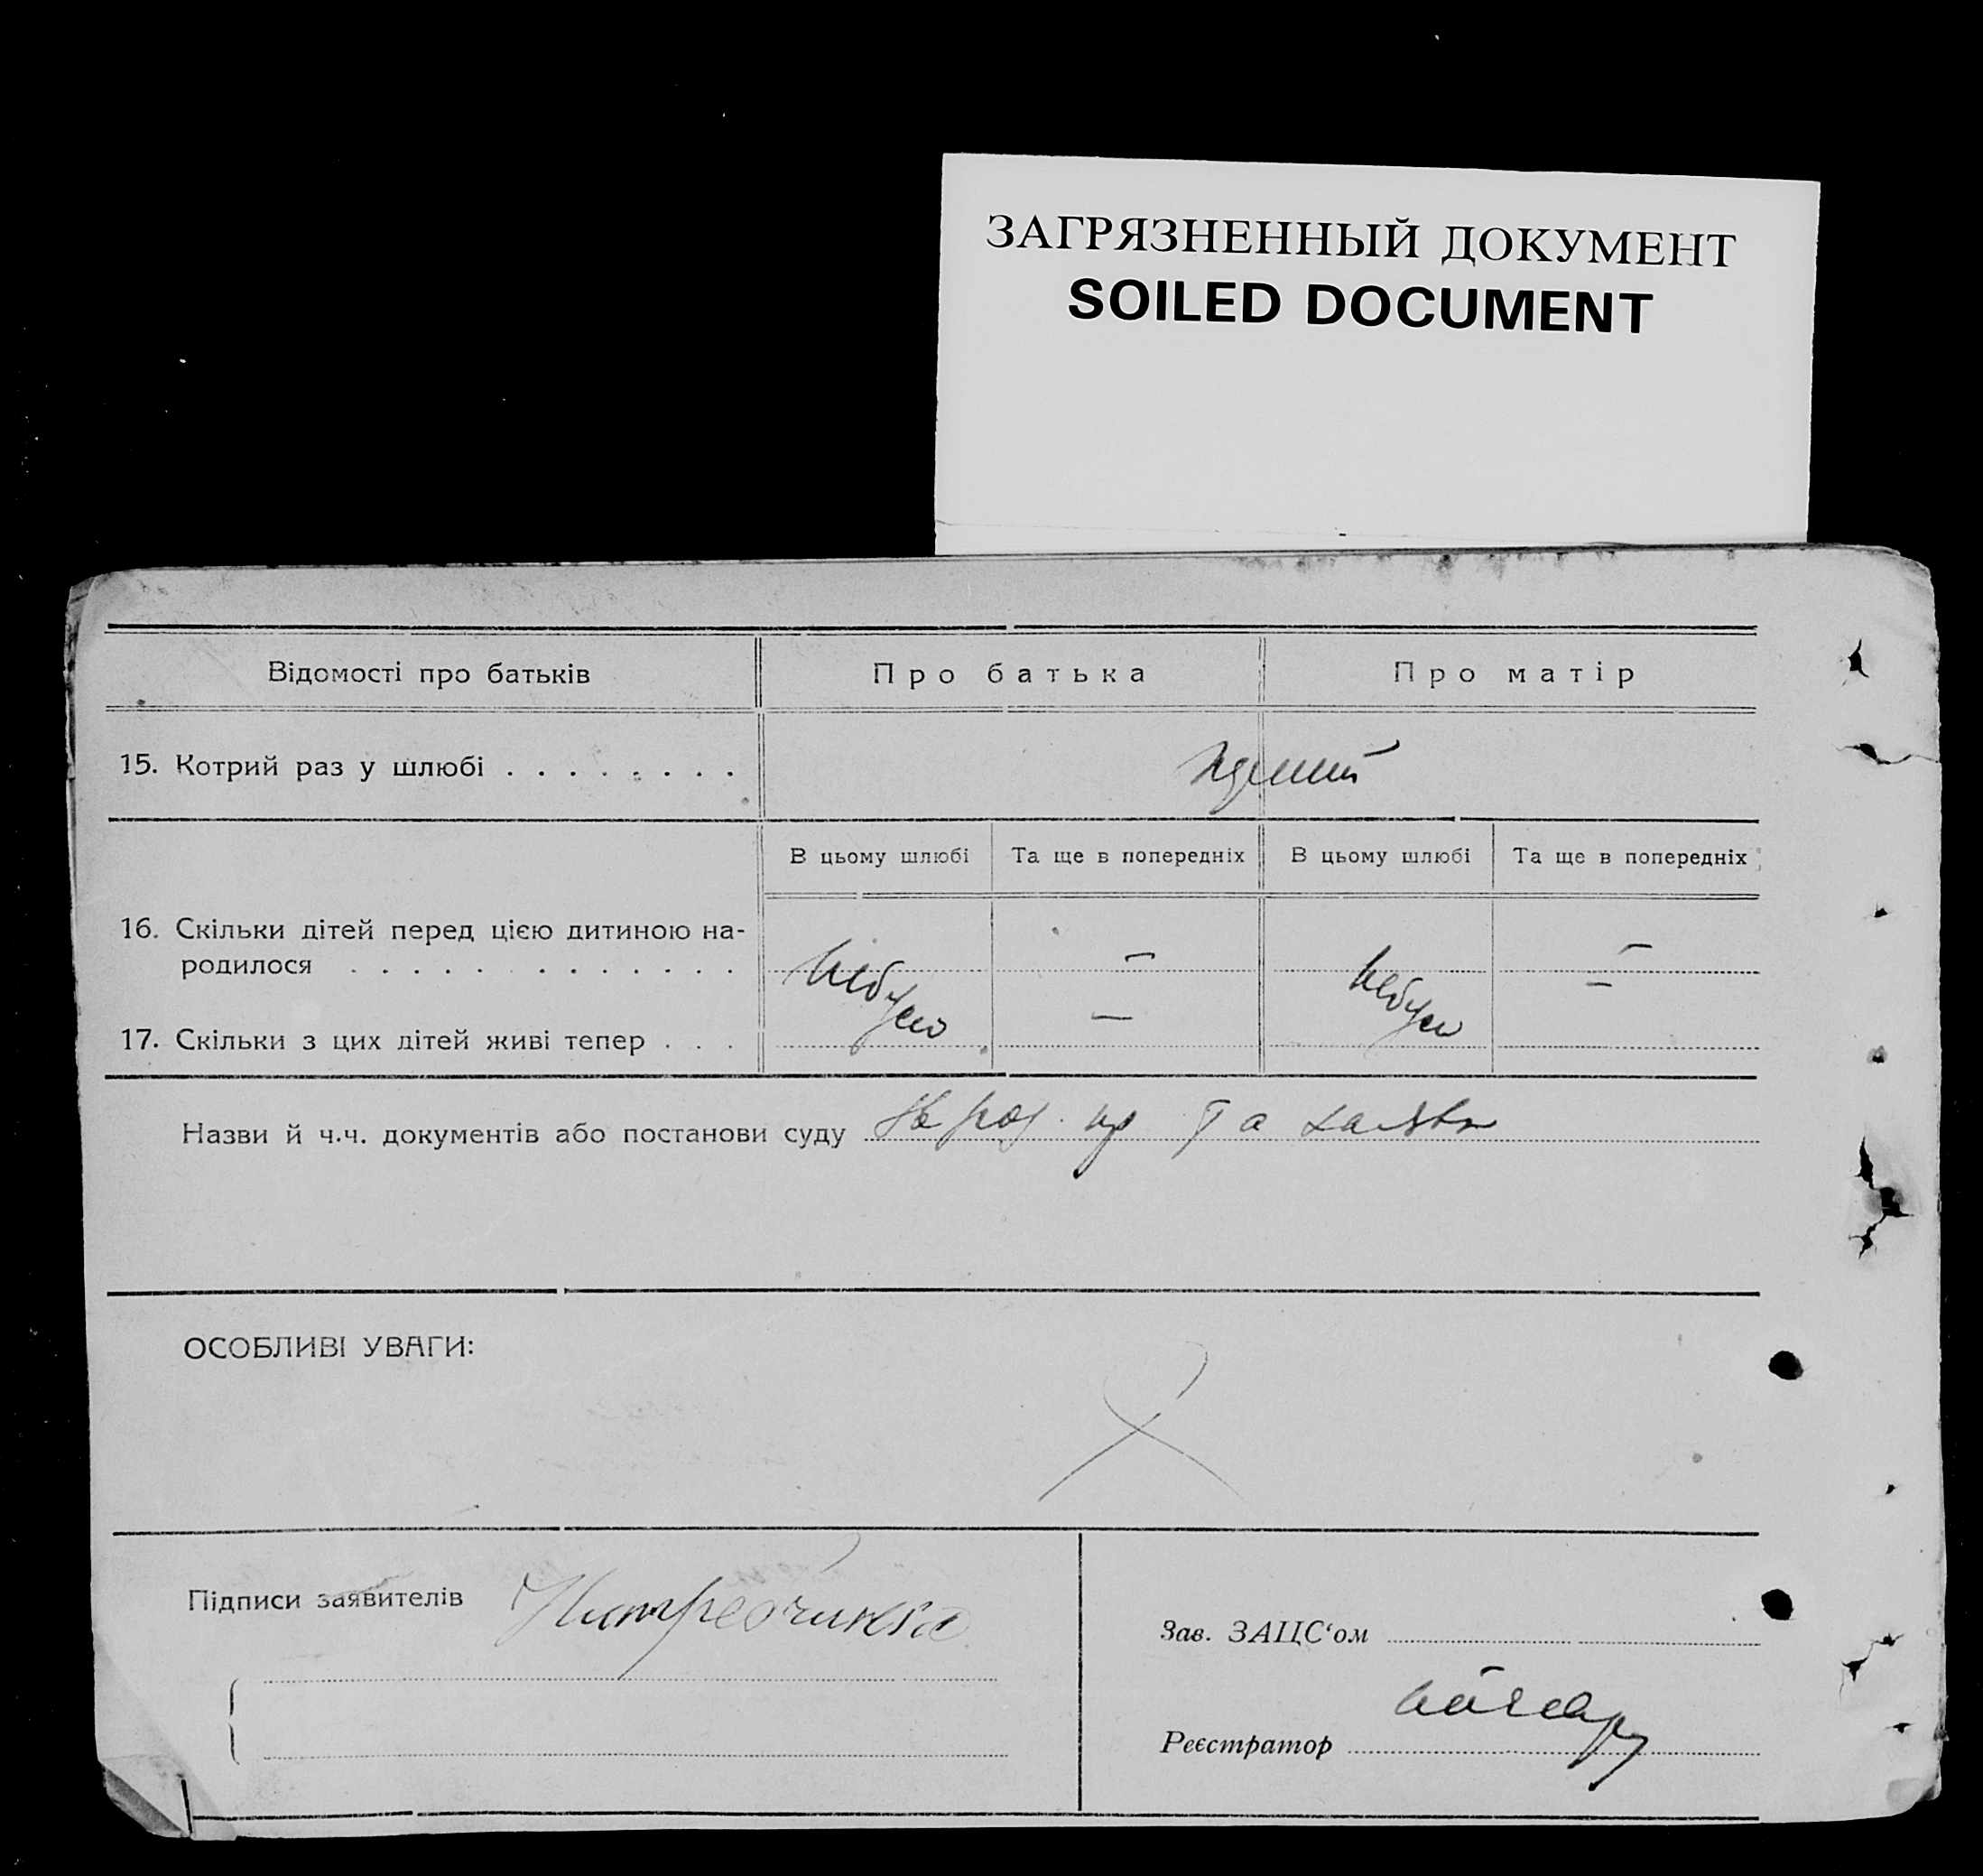 ЗАГРЯЗНЕННЫЙ ДОКУМЕНТ
SOILED DOCUMENT
Відомості про батьків Про батька Про матір
15. Котрий раз у шлюбі . . . . . . . .
В цьому шлюбі Та ще в попередніх В цьому шлюбі Та ще в попередніх
16. Скільки дітей перед цією дитиною на-
родилося . . . . . . . . . . . . . — —
небуло — небуло —
17. Скільки з цих дітей живі тепер . . .
Назви й ч.ч. документів або постанови суду та
ОСОБЛИВІ УВАГИ:
Підписи заявителів
Зав. ЗАЦС‘ом
Реєстратор